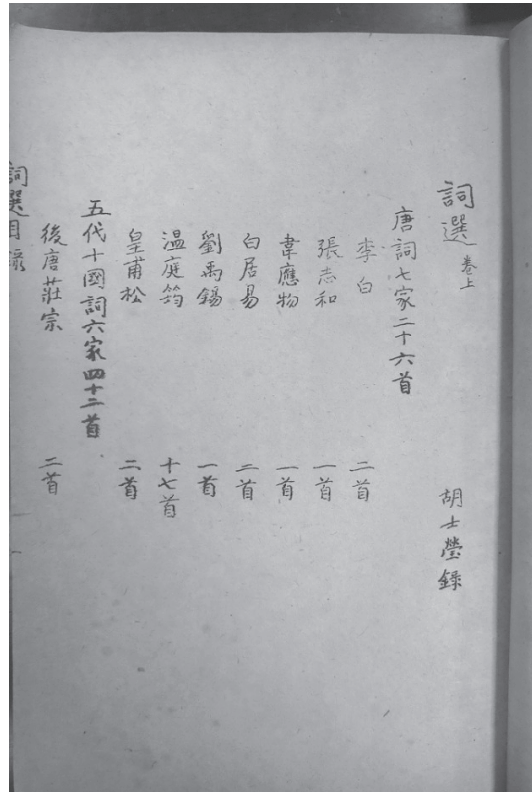 詞選 卷上 胡士瑩錄
唐詞七家二十六首
李白 二首
張志和 一首
韋應物 一首
白居易 二首
劉禹錫 一首
溫庭筠 十七首
皇甫松 二首
五代十國詞六家四十二首
後唐莊宗 二首
詞選目錄